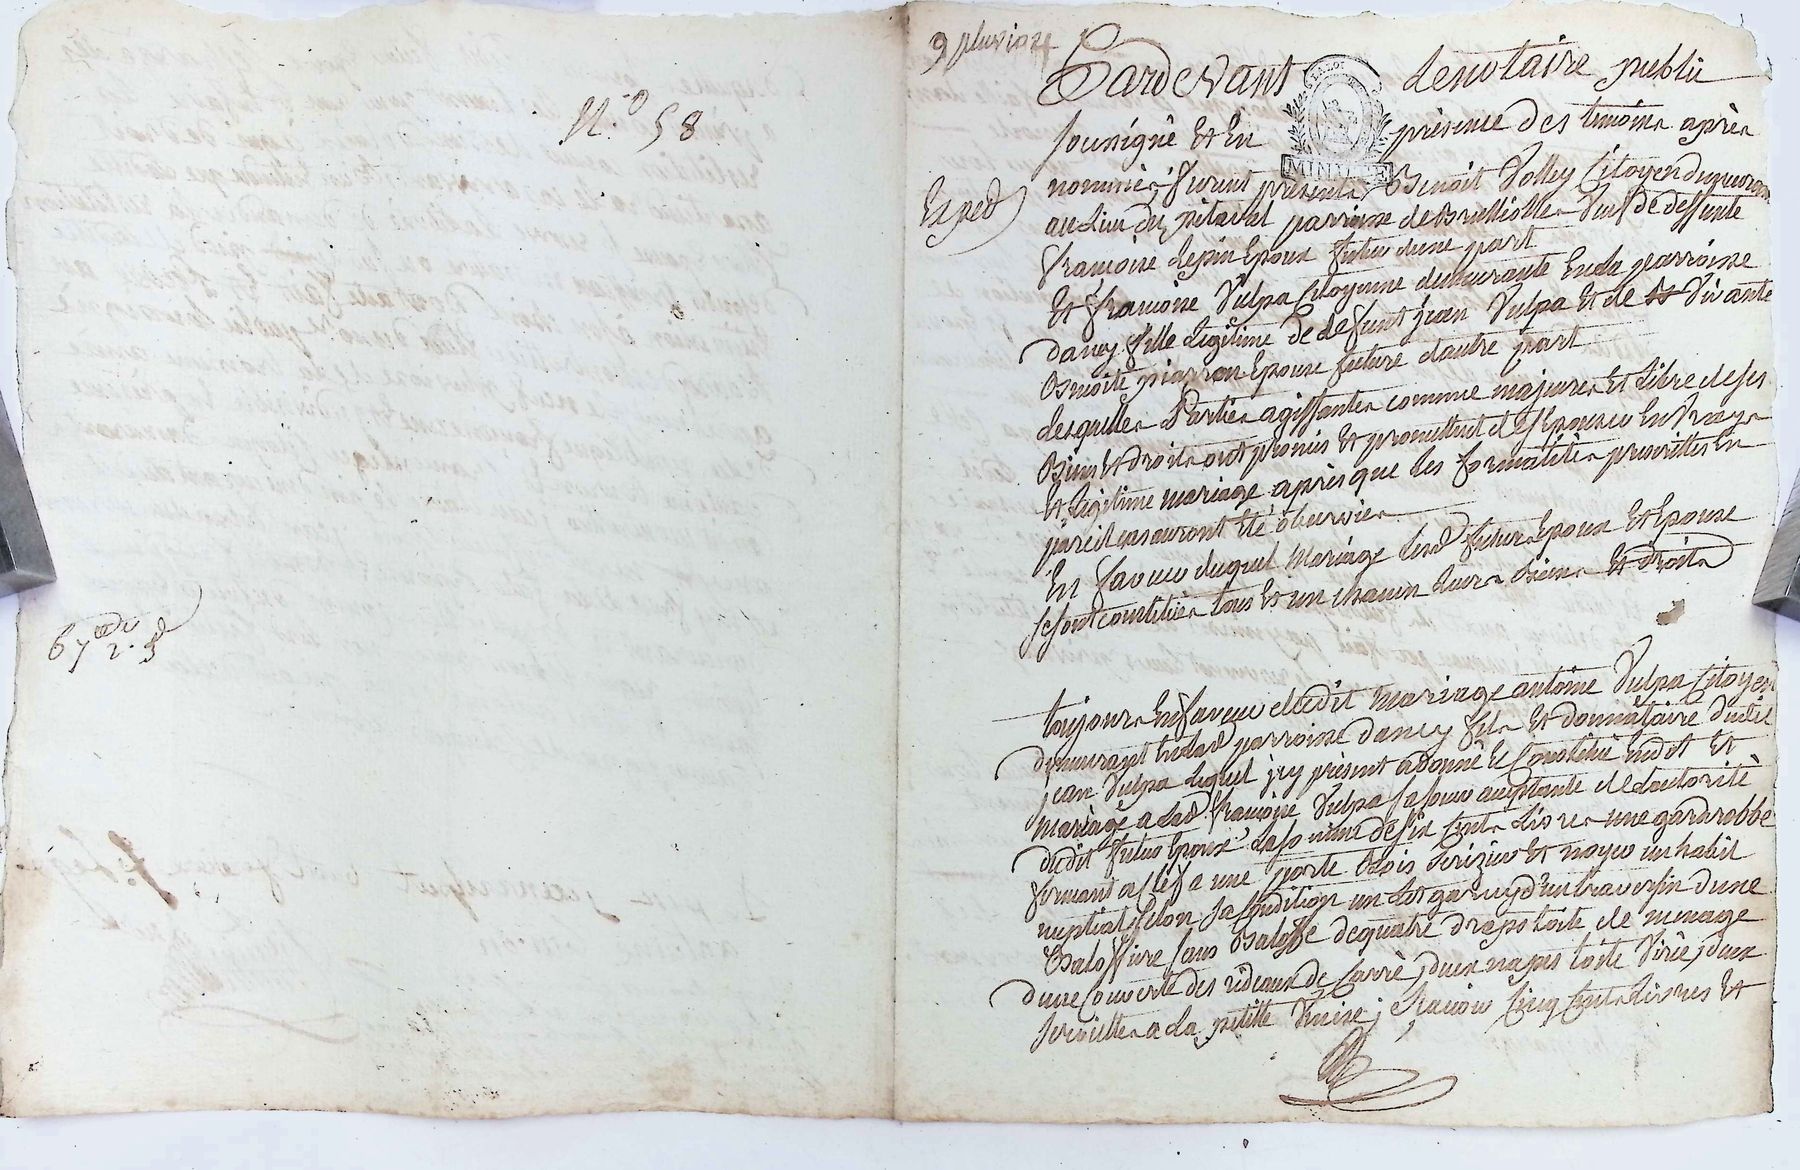 N.o 58
67 2. 3
9 pluviose 4
Expéd
Pardevant le notaire public
LA LOI
MINUTE
soussigné Et En présence des temoins apres
nommés, furent présents Benoit Volley Citoyen demeurant
au Lieu du pitaval parroisse de Brussiolles Veuf de deffunte
françoise Lepin Epoux futur dune part
Et françoise Vulpa Citoyenne demeurante En la parroisse
dancy fille Legitime de defunt jean Vulpa Et de Vivante
Benoite piarron Epouse future dautre part
Lesquelles Parties agissantes comme majeures Et Libre de ses
Biens Et droits ont promis Et promettent de sEpouser En Vray
Et Legitime mariage apres que les formalités prescrittes En
pareil cas auront Eté observées
En faveur duquel Mariage Lesd. futurs Epoux Et Epouse
se sont constitués tous Et un chacun Leurs Biens Et droits
toujours En faveur dudit Mariage antoine Vulpa Citoyen
demeurant En lad. parroisse dancy fils Et donnataire dudit
jean Vulpa Lequel jcy présent a donné Et Constitué En dot Et
Mariage a Lad. françoise Vulpa sa soeur acceptante de Lautorité
dudit futur Epoux La somme de six Cents Livres une garderobbe
fermant a clef a une porte Bois Serizier Et noyer un habit
nuptial selon sa Condition un Lit garny d'un traversin dune
Balossiere sans Balosse de quatre draps toile de menage
dune Couverte des rideaux de Carré, deux napes toile Virée, deux
serviettes a La petitte Venise; scavoir Cinq Cents Livres Et